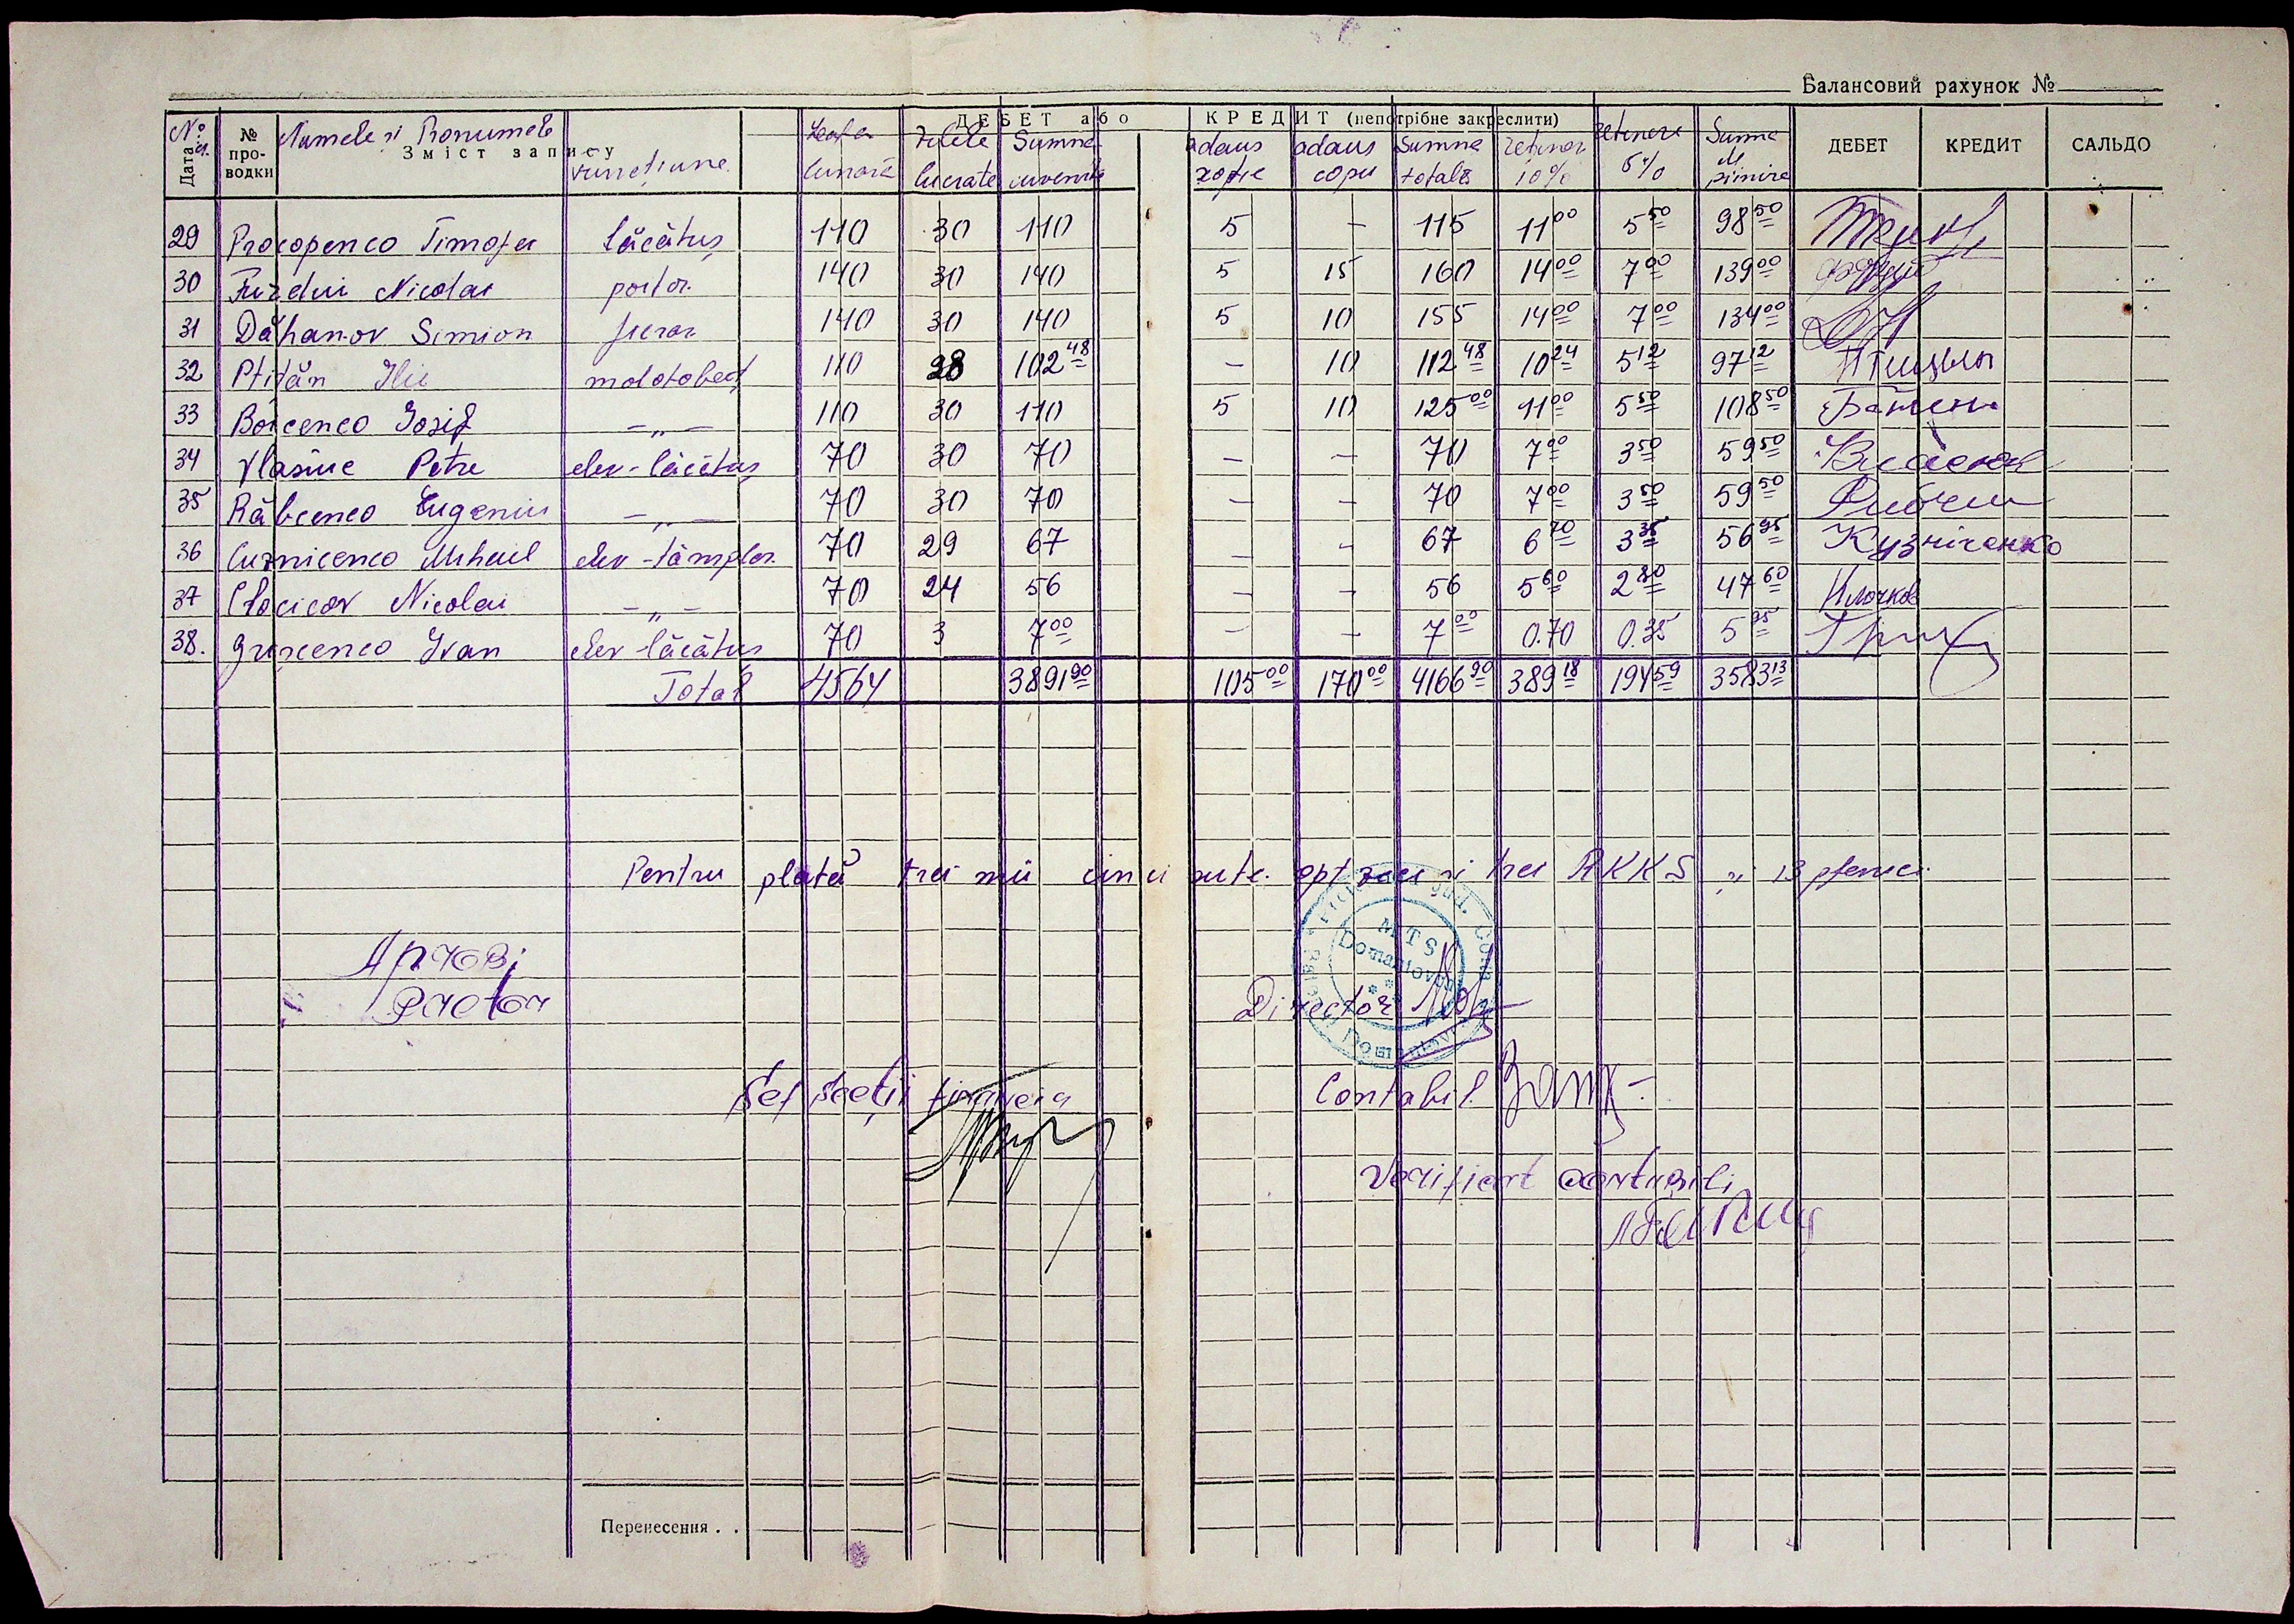 Балансовий рахунок №
ДЕБЕТ або КРЕДИТ (непотрібне закреслити)
№ Дата № проводки Numele și Pronumele Зміст запису Funcțiune Leafa lunară Zilele lucrate Suma cuvenită adaus soție adaus copii Suma totală reținere 10% reținere 5% Suma de primire ДЕБЕТ КРЕДИТ САЛЬДО
29 Procopenco Timofei lăcătuș 110 30 110 5 – 115 11 00 5 50 98 50
30 Furdui Nicolai portar 140 30 140 5 15 160 14 00 7 00 139 00
31 Dăhanov Simion fierar 140 30 140 5 10 155 14 00 7 00 134 00
32 Ptițăn Ilie molotobeț 110 28 102 48 – 10 112 48 10 24 5 12 97 12
33 Boicenco Iosif –„– 110 30 110 5 10 125 00 11 00 5 50 108 50
34 Vlasiuc Petre elev-lăcătuș 70 30 70 – – 70 7 00 3 50 59 50
35 Răbcenco Eugeniu –„– 70 30 70 – – 70 7 00 3 50 59 50
36 Cuznicenco Mihail elev-tâmplar 70 29 67 – – 67 6 70 3 35 56 95 Кузніченко
37 Clocicov Nicolai –„– 70 24 56 – – 56 5 60 2 80 47 60
38. Grișcenco Ivan elev-lăcătuș 70 3 7 00 – – 7 00 0.70 0.35 5 95
Total 4564 3891 90 105 00 170 00 4166 90 389 18 194 59 3583 13
Pentru plată trei mii cinci sute opt zeci și trei RKKS și 13 pfenici.
MTS
Domaniovca
Aprob,
Pretor
Director
Șef secții financia
Contabil
Verificat contabili
Перенесення . .